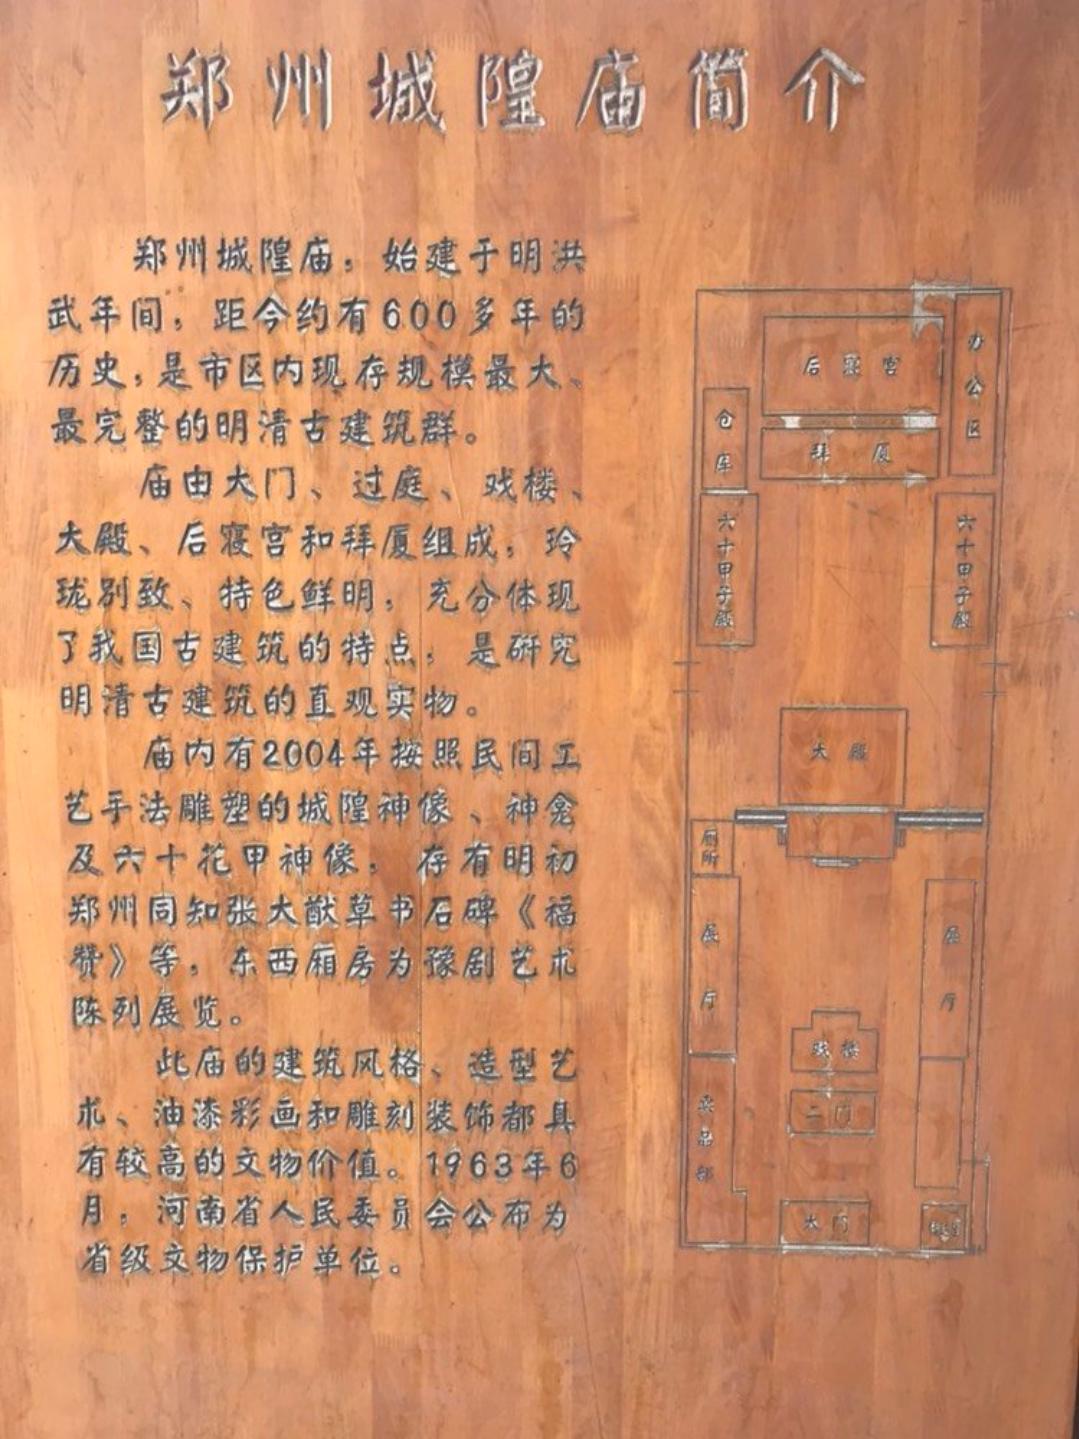 郑州城隍庙简介
郑州城隍庙，始建于明洪
武年间，距今约有600多年的
历史，是市区内现存规模最大、
最完整的明清古建筑群。
庙由大门、过庭、戏楼、
大殿、后寝宫和拜厦组成，玲
珑别致、特色鲜明，充分体现
了我国古建筑的特点，是研究
明清古建筑的直观实物。
庙内有2004年按照民间工
艺手法雕塑的城隍神像、神龛
及六十花甲神像，存有明初
郑州同知张大猷草书石碑《福
赞》等，东西厢房为豫剧艺术
陈列展览。
此庙的建筑风格、造型艺
术、油漆彩画和雕刻装饰都具
有较高的文物价值。1963年6
月，河南省人民委员会公布为
省级文物保护单位。
后寝宫
办公区
仓库
拜厦
六十甲子殿
六十甲子殿
大殿
厕所
展厅
展厅
戏楼
二门
卖品部
大门